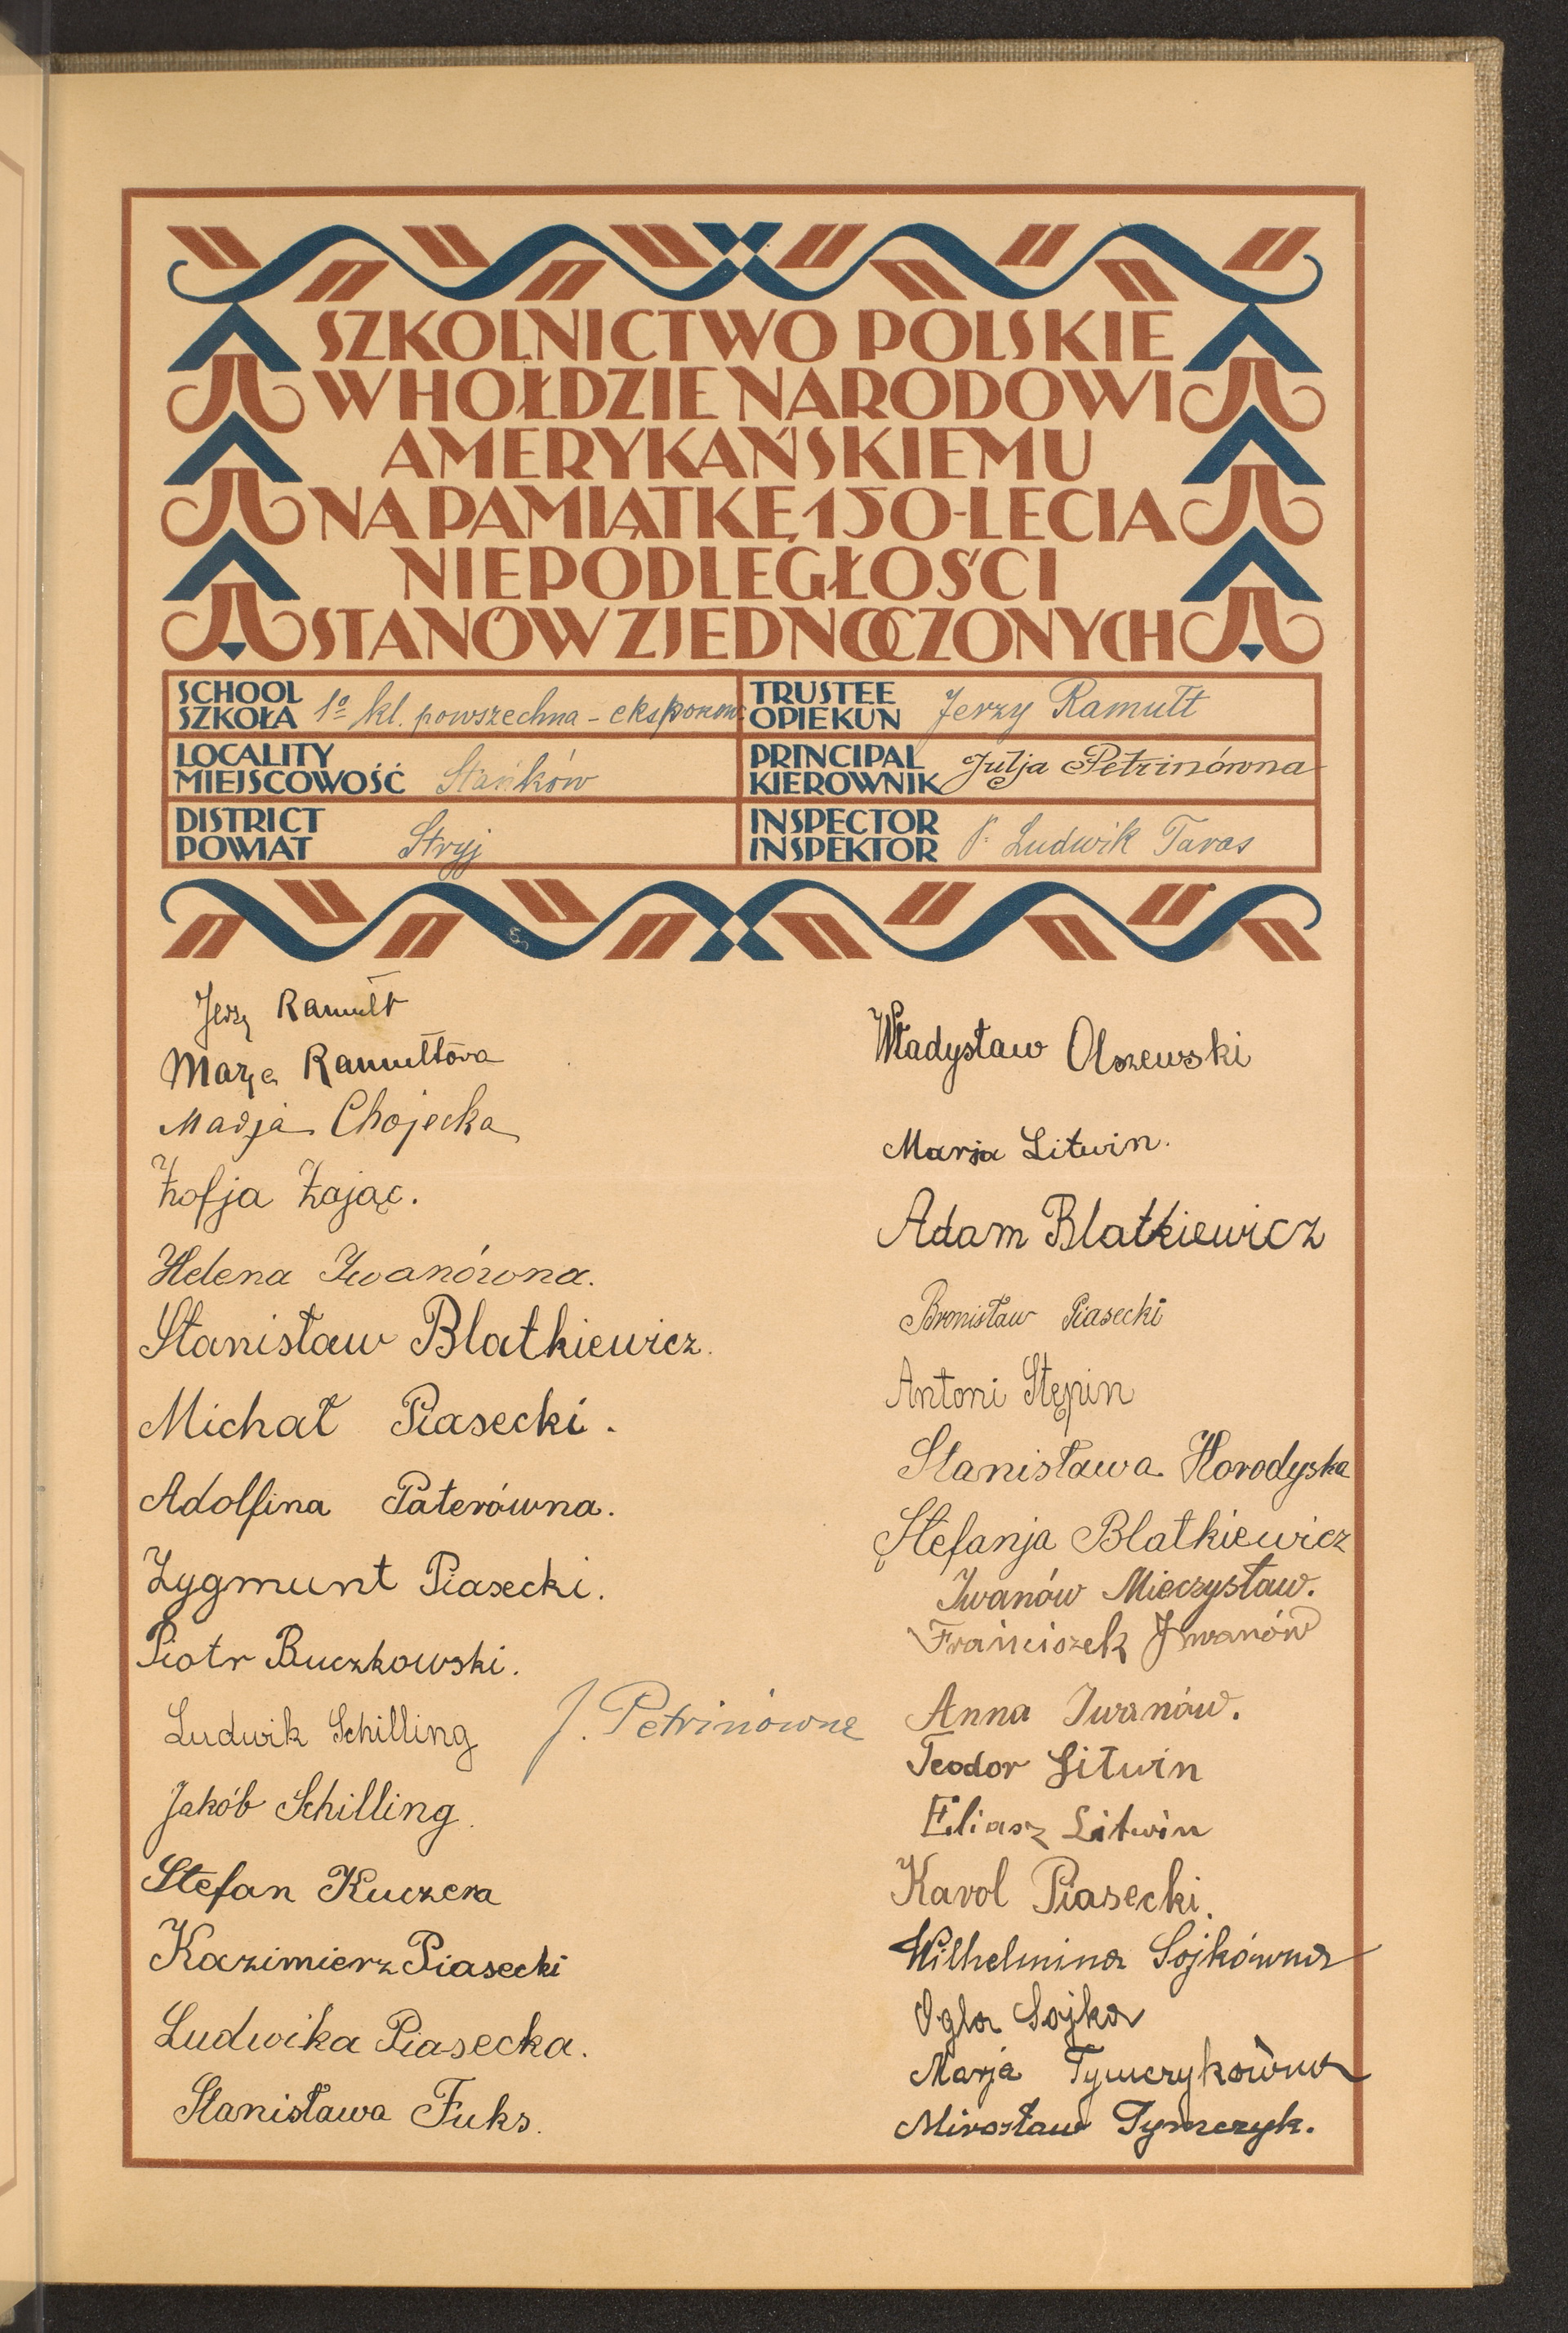 SZKOLNICTWO POLSKIE
W HOŁDZIE NARODOWI
AMERYKAŃSKIEMU
NA PAMIĄTKĘ 150-LECIA
NIEPODLEGŁOŚCI
STANÓW ZJEDNOCZONYCH
SCHOOL
SZKOŁA 1º kl. powszechna - eksponow.
TRUSTEE
OPIEKUN Jerzy Ramułt
LOCALITY
MIEJSCOWOŚĆ Stańków
PRINCIPAL
KIEROWNIK Julja Petrinówna
DISTRICT
POWIAT Stryj
INSPECTOR
INSPEKTOR Ludwik Taras
Jerzy Ramułt
Marja Ramułtowa
Marja Chojecka
Zofja Zając.
Helena Iwanówna.
Stanisław Blatkiewicz.
Michał Piasecki.
Adolfina Paterówna.
Zygmunt Piasecki.
Piotr Buczkowski.
Ludwik Schilling
Jakób Schilling.
Stefan Kuczera
Kazimierz Piasecki
Ludwika Piasecka.
Stanisława Fuks.
J. Petrinówna
Władysław Olszewski
Marja Litwin.
Adam Blatkiewicz
Bronisław Piasecki
Antoni Stępin
Stanisława Horodyska
Stefanja Blatkiewicz
Iwanów Mieczysław.
Franciszek Iwanów
Anna Iwanów.
Teodor Litwin
Eliasz Litwin
Karol Piasecki.
Wilhelmina Sojkówna
Ogla Sojka
Marja Tymczykówna
Mirosław Tymczyk.